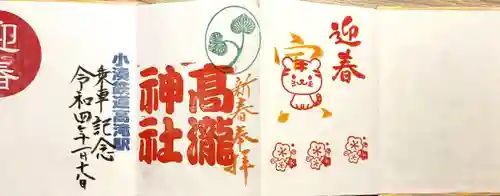 迎春
寅
新春奉拝
高瀧
神社
小湊鉄道高滝駅
乗車記念
令和四年一月七日
迎春